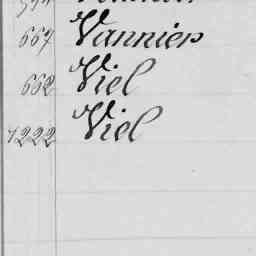 667 Vannier
662 Viel
1222 Viel